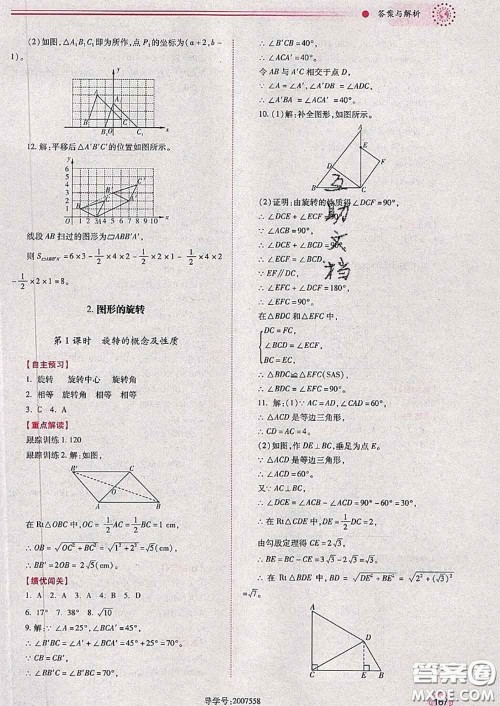 答案与解析
(2)如图,△A₁B₁C₁即为所作,点P₁的坐标为(a+2,b-
1)。
12. 解:平移后△A'B'C'的位置如图所示。
线段AB扫过的图形为▱ABB'A',
则S▱ABB'A'=6×3-1/2×4×2-1/2×2×1-1/2×4×2
-1/2×2×1=8。
2. 图形的旋转
第1课时 旋转的概念及性质
【自主预习】
1. 旋转 旋转中心 旋转角
2. 相等 旋转角 相等 相等
3. C 4. A
【重点解读】
跟踪训练1. 120
跟踪训练2. 解:如图,
在Rt△OBC中,OC=1/2AC=1/2BC=1 cm,
∴OB=√(OC²+BC²)=√(1²+2²)=√5(cm),
∴BB'=2OB=2√5(cm)。
【绩优闯关】
1. A 2. A 3. A 4. B 5. D
6. 17° 7. 38° 8. √10
9. 解:∵∠A=25°,∠BCA'=45°,
∴∠B'BC=∠A'+∠BCA'=45°+25°=70°。
∵CB=CB',
∴∠BB'C=∠B'BC=70°,
∴∠B'CB=40°,
∴∠ACA'=40°。
令AB与A'C相交于点D,
∵∠A=∠A',∠A'DB=∠ADC,
∴∠A'BA=∠ACA'=40°。
10. (1)解:补全图形,如图所示。
(2)证明:由旋转的性质得∠DCF=90°,
∴∠DCE+∠ECF=90°。
∵∠ACB=90°,
∴∠DCE+∠BCD=90°,
∴∠ECF=∠BCD。
∵EF∥DC,
∴∠EFC+∠DCF=180°,
∴∠EFC=90°。
在△BDC和△EFC中,
DC=FC,
∠BCD=∠ECF,
BC=EC,
∴△BDC≌△EFC(SAS),
∴∠BDC=∠EFC=90°。
11. 解:(1)∵AC=AD,∠CAD=60°,
∴△ACD是等边三角形,
∴CD=AC=4。
(2)如图,作DE⊥BC,垂足为点E。
∵△ACD是等边三角形,
∴∠ACD=60°。
又∵AC⊥BC,
∴∠DCE=∠ACB-∠ACD=90°-60°=30°,
∴在Rt△CDE中,DE=1/2DC=2,
由勾股定理得CE=2√3,
∴BE=BC-CE=3√3-2√3=√3。
∴在Rt△BDE中,BD=√(DE²+BE²)=√(2²+(√3)²)
=√7。
五
助
文
档
导学号:2007558
答案圈
MXQE.COM
167